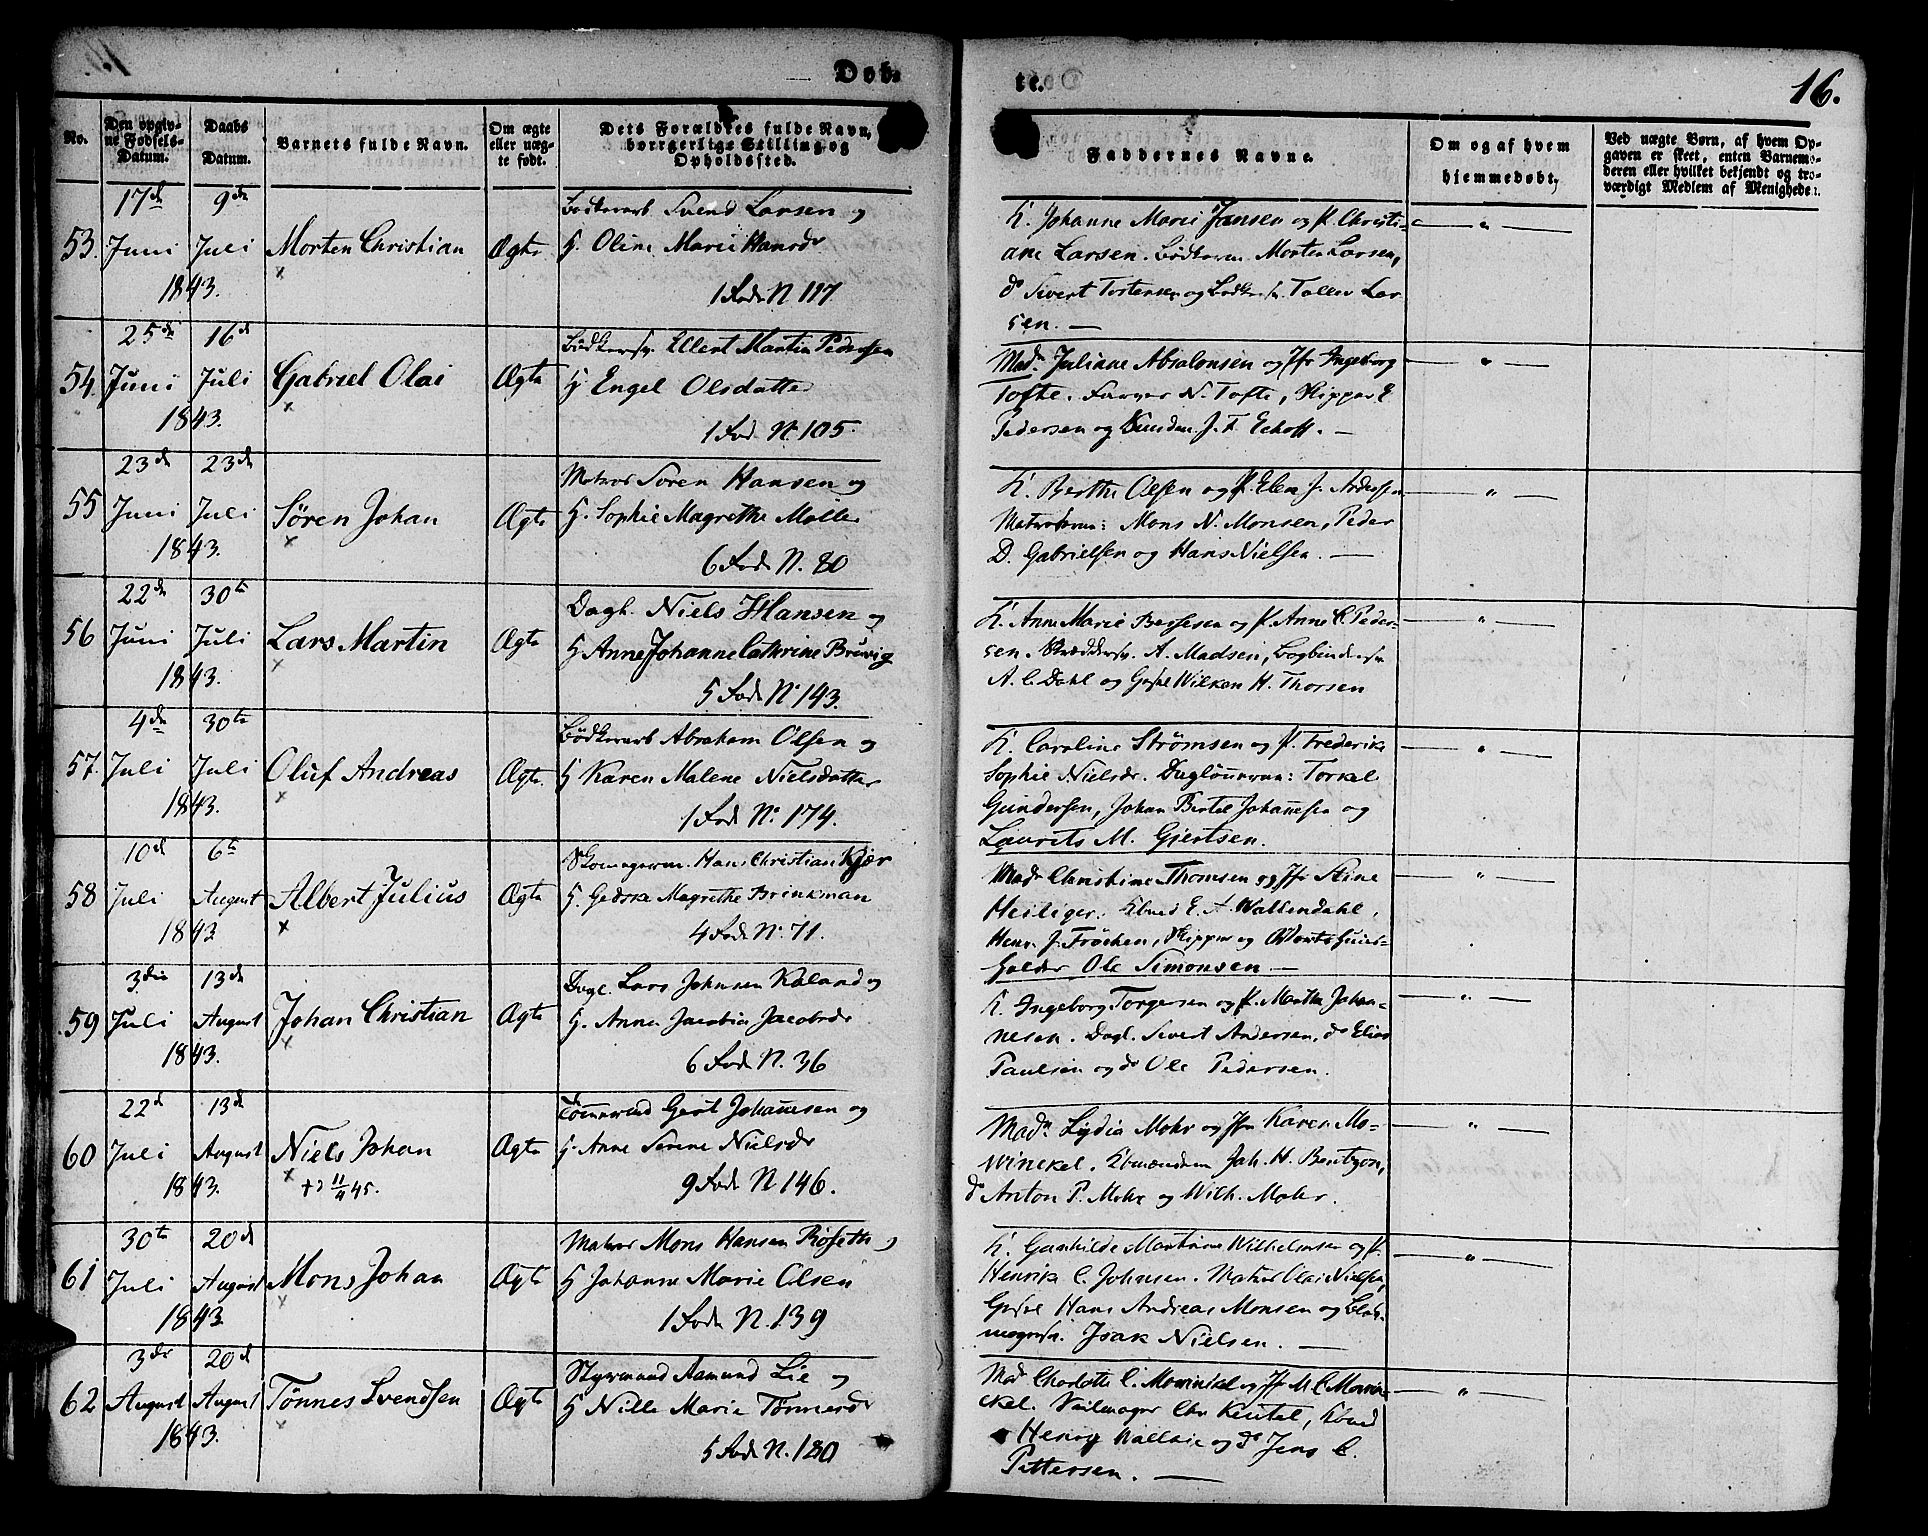 Døb-
te.
16.
No.
Den opgiv-
ne Fødsels-
Datum.
Daabs
Datum.
Barnets fulde Navn.
Om ægte
eller uæg-
te født.
Dets Forældres fulde Navn,
borgerlige Stilling og
Opholdssted.
Faddernes Navne.
Om og af hvem
hjemmedøbt,
Ved uægte Børn, af hvem Op-
gaven er skeet, enten Barnemo-
deren eller hvilket bekjendt og tro-
værdigt Medlem af Menigheden.
53. 17de Juni 9de Juli 1843. Morten Christian Ægte
Bødkerarb Svend Larsen og
H. Oline Marie Hansdr
1 Fods N 117
K. Johanne Marie Jansen og P. Christi-
ane Larsen. Bødkersv. Morten Larsen,
do Sivert Tostensen og Bødkersv. Tollev Lar
sen. —
54. 25de Juni 16de Juli 1843. Gabriel Olai Ægte
Bødkersv. Ellert Martin Pedersen
H Engel Olsdatter
1 Fod. N. 105.
Mad. Juliane Absalonsen og Jfr Ingeborg
Tofte. Farver N. Tofte, Skipper E
Pedersen og J. F. Echoff. —
55 23de Juni 23de Juli 1843. Søren Johan Ægte
Matros Søren Hansen og
H. Sophie Magrethe Møller
6 Fods N. 80
K. Berthe Olsen og P. Elen J. Andersen
Matroserne: Mons N. Monsen, Peder
D. Gabrielsen og Hans Nielsen. —
56 22de Juni 30te Juli 1843. Lars Martin Ægte
Dagl. Niels J Hansen og
H Anne Johanne Cathrine Bruvig
5 Fods N. 143.
K. Anne Marie Bersesen og P. Anne C. Peder-
sen. Skreddersv. A. Madsen, Bogbindersv
A. C. Dahl og Wilken H. Thorsen
57. 4de Juli 30te Juli 1843. Oluf Andreas Ægte.
Bødkerarb Abraham Olsen og
H Karen Malene Nielsdatter
1 Fod N. 174.
K. Caroline Strømsen og P. Frederike
Sophie Nielsdr. Daglønnerne: Torkel
Gundersen, Johan Bertel Johannesen og
Laurits M. Gjertsen.
58 10de Juli 6te August 1843 Albert Julius Ægte
Skomagerm. Hans Christian Kjær
H. Gedske Magrethe Brinkman
4 Fods N. 71.
Mad. Christine Thomsen og Jfr Stine
Heiliger. Kbmd E. A. Wallendahl,
Henr. J. Frøchen, Skipper og
holder Ole Simonsen —
59 3die Juli 13de August 1843. Johan Christian Ægte
Dagl. Lars Johnsen Kaland og
H. Anne Jacobia Jacobsdr
6 Fods N. 36
K. Ingeborg Torgersen og P. Martha Johan-
nesen. Dagl. Sivert Andersen, do Elias
Paulsen og do Ole Pedersen.
60 22de Juli 13de August 1843. Niels Johan Ægte
+ 11/4 45.
Tømmermd Gert Johannesen og
H. Anne Serine Nielsdr
9 Fods N 146.
Mad. Lydia Mohr og Jfr Karen Mo-
winckel. Kbmændene Joh. H. Bentzon,
do Anton P. Mohr og Wilh. Mohr.
61 30te Juli 20de August 1843 Mons Johan Ægte
Matros Mons Hansen Røseth og
H Johanne Marie Olsen
1 Fods N. 139
K. Gunhilde Martine Wilhelmsen og P.
Henrike C. Johnsen. Matros Olai Nielsen,
Hans Andreas Monsen og Blok-
magersv. Isak Nielsen. —
62 3de August 20de August 1843. Tønnes Svendsen Ægte
Styrmand Aamund Lie og
H Nille Marie Tønnesdr
5 Fods N. 180
Mad Charlotte C. Mowinkel og Jfr M. C. Mowin
ckel. Seilmager Chr Keutel, Kbmd
Henrog Wallace og do Jens C.
Pettersen. —